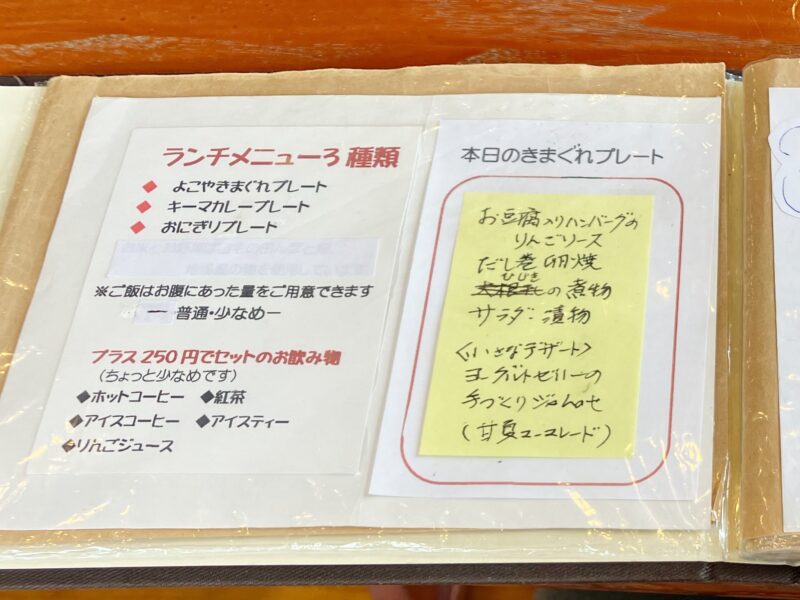 ランチメニュー3種類
◆ よこやきまぐれプレート
◆ キーマカレープレート
◆ おにぎりプレート
※ご飯はお腹にあった量をご用意できます
ー 普通・少なめー
プラス250円でセットのお飲み物
(ちょっと少なめです)
◆ホットコーヒー ◆紅茶
◆アイスコーヒー ◆アイスティー
◆りんごジュース
本日のきまぐれプレート
お豆腐入りハンバーグの
りんごソース
だし巻卵焼
ひじき
の煮物
サラダ・漬物
〈小さなデザート〉
ヨーグルトゼリーの
手づくりジャムのせ
(甘夏マーマレード)